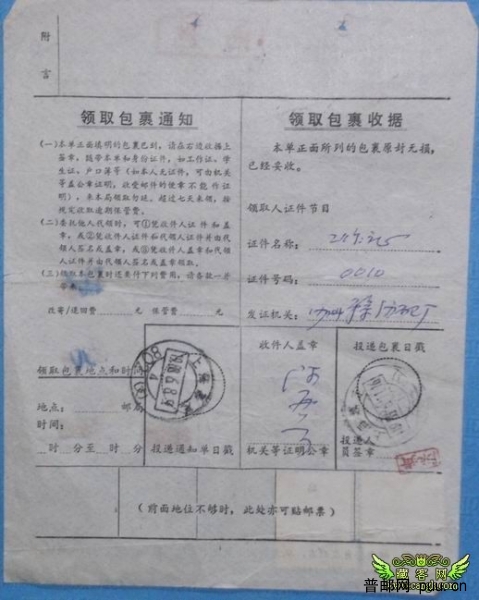 附言
领取包裹通知
(一)本单正面填明的包裹已到，请在右边收据上
签章，随带本单和身份证件，如工作证、学
生证、户口簿等(如本人无证件，可由机关
等盖公章证明，收受邮件的便章不能作证
明)，来本局领取勿迟。超过七天来领，按
规定收取逾期保管费。
(二)委托他人代领时，可①凭收件人证件和盖
章，或②凭收件人证件和代领人证件并由代
领人签名或盖章，或③凭收件人盖章和代领
人证件并由代领人签名或盖章领取。
(三)领取本包裹时还要付下列费用，请各款一并
带来。
改寄/退回费 元 保管费 元
领取包裹地点和时
地点： 邮局
时间：
时 分至 时 分
投递通知单日戳
领取包裹收据
本单正面所列的包裹原封无损，
已经妥收。
领取人证件节目
证件名称：工作证
证件号码：0010
发证机关：
收件人盖章
机关等证明公章
投递包裹日戳
投递人
员签章
(前面地位不够时，此处亦可贴邮票)
藏客网
普邮网-puu.cn